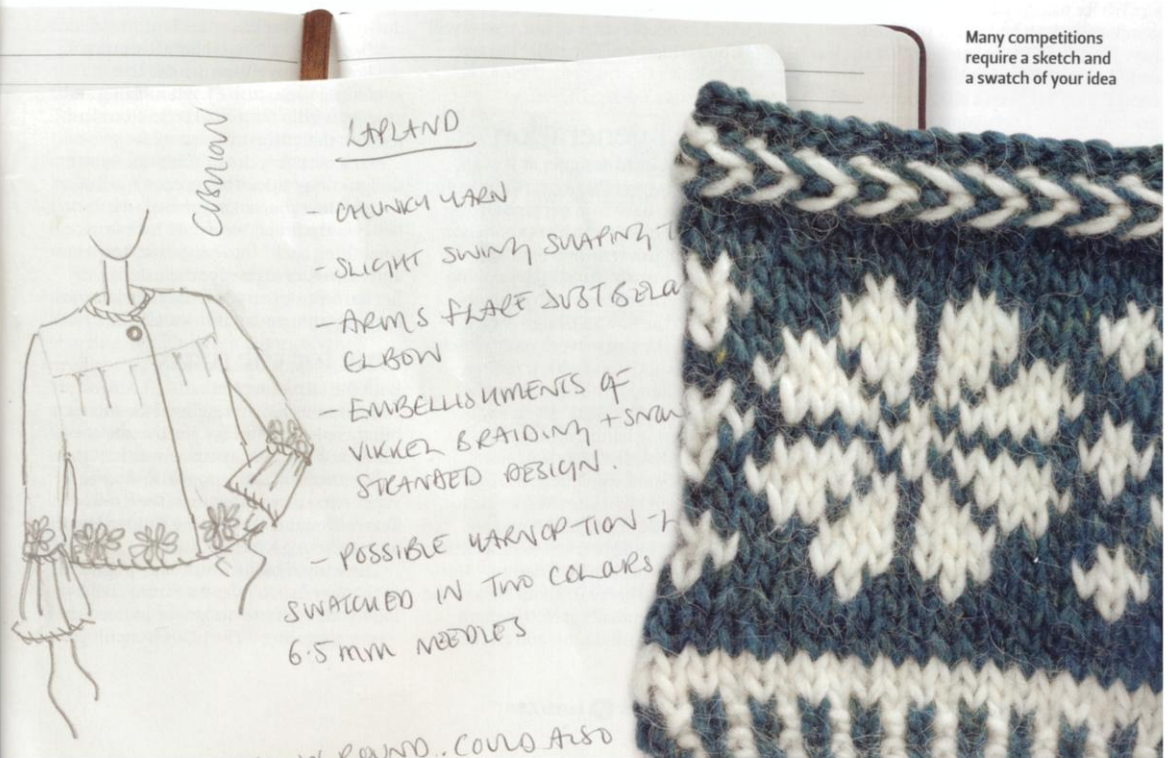 Many competitions
require a sketch and
a swatch of your idea
LAPLAND
- CHUNKY YARN
- SLIGHT SWING SHAPING
- ARMS FLARE JUST BELOW
ELBOW
- EMBELLISHMENTS OF
VIKKEL BRAIDING +
STRANDED DESIGN.
- POSSIBLE YARN OPTION -
SWATCHED IN TWO COLOURS
6.5mm NEEDLES
ROUND.. COULD ALSO